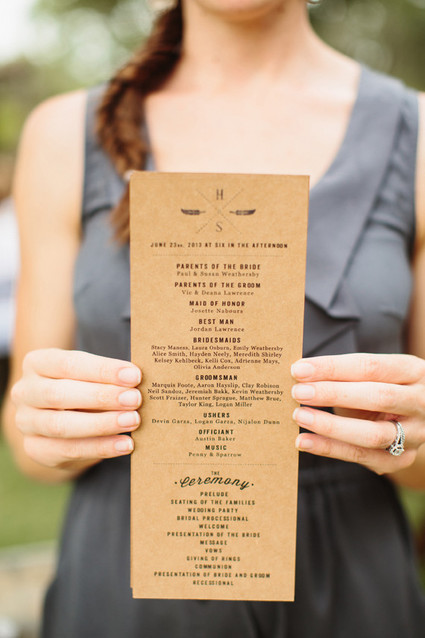 H
S
JUNE 22ND, 2013 AT SIX IN THE AFTERNOON
PARENTS OF THE BRIDE
Paul & Susan Weathersby
PARENTS OF THE GROOM
Vic & Deana Lawrence
MAID OF HONOR
Josette Nabours
BEST MAN
Jordan Lawrence
BRIDESMAIDS
Stacy Maness, Laura Osborn, Emily Weathersby
Alice Smith, Hayden Neely, Meredith Shirley
Kelsey Kohlbeck, Kelli Cox, Adrienne Mince
Olivia Anderson
GROOMSMAN
Marquis Foote, Aaron Hayslip, Clay Robison
Neil Sandoz, Jeremiah Bakk, Kevin Weathersby
Scott Fraizer, Hunter Sprague, Matthew Brue,
Taylor King, Logan Miller
USHERS
Devin Garza, Logan Garza, Nijalon Dunn
OFFICIANT
Austin Baker
MUSIC
Penny & Sparrow
THE
Ceremony
PRELUDE
SEATING OF THE FAMILIES
WEDDING PARTY
BRIDAL PROCESSIONAL
WELCOME
PRESENTATION OF THE BRIDE
MESSAGE
VOWS
GIVING OF RINGS
COMMUNION
PRESENTATION OF BRIDE AND GROOM
RECESSIONAL